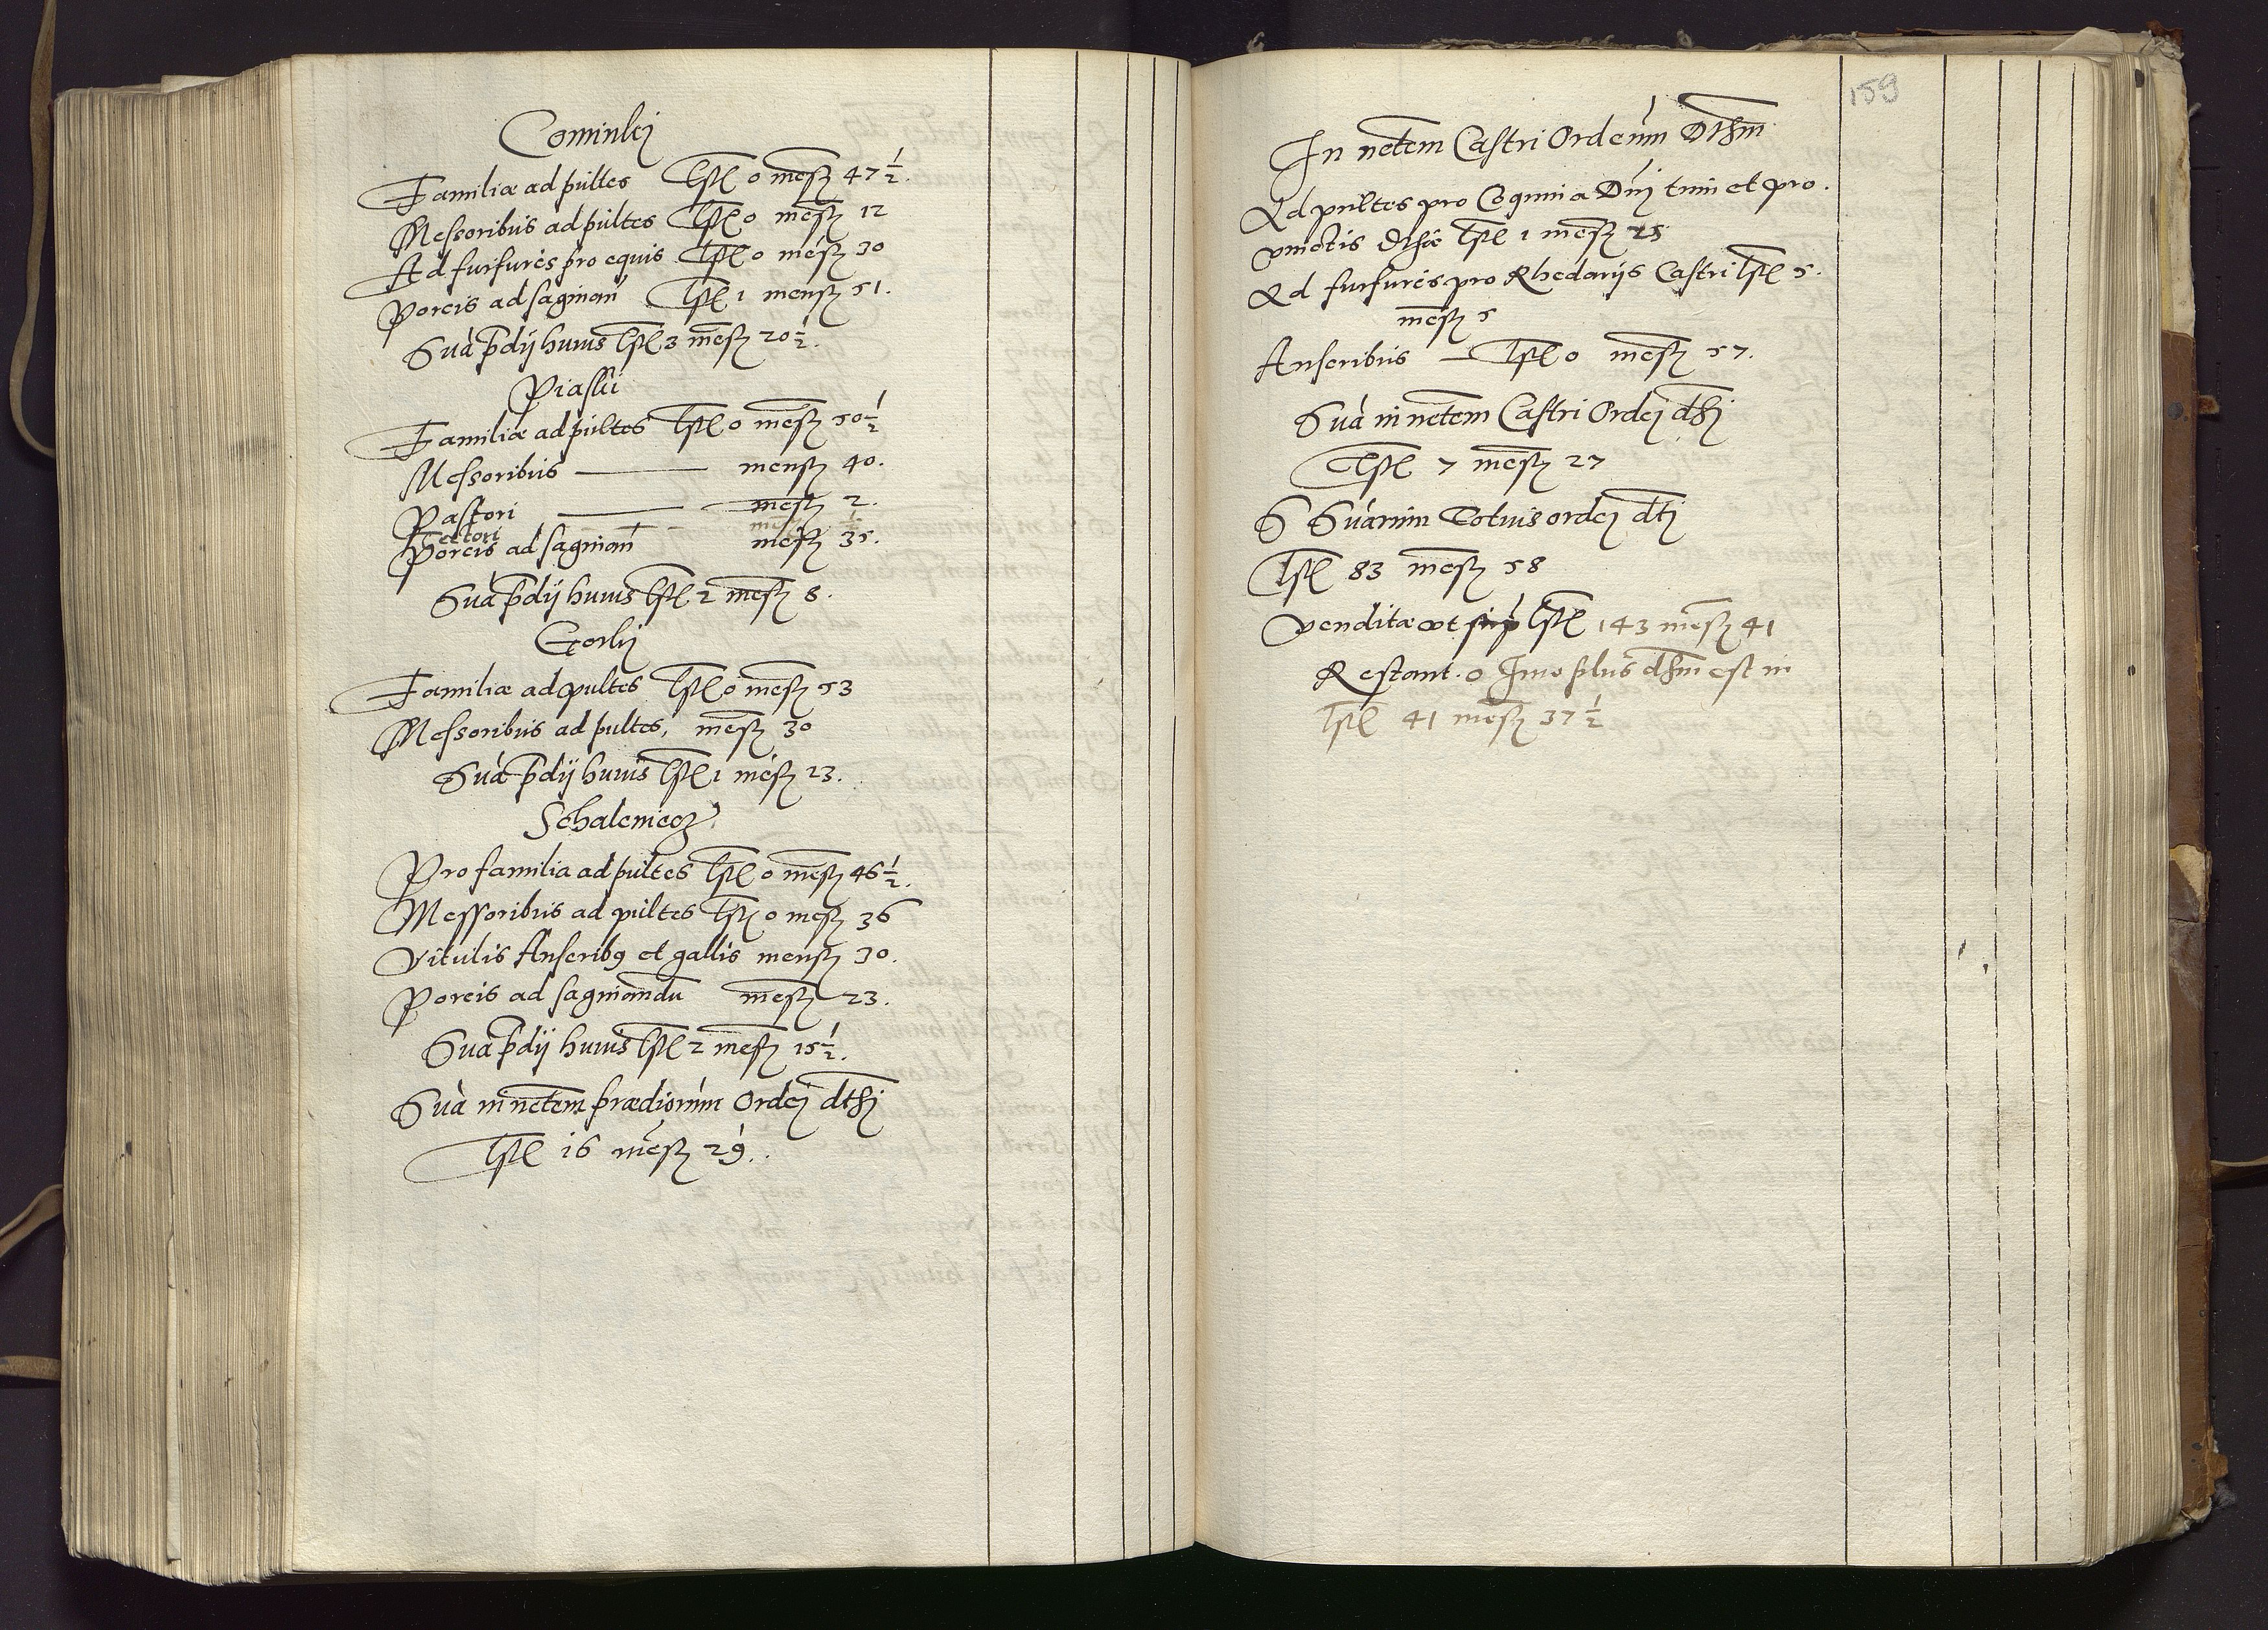 Cominley
Familiæ ad pultes Tʃl o mensʒ 47½.
Messoribus ad pultes Tʃl o mensʒ 12
Ad furfures pro equis Tʃl o mensʒ 30
Porcis ad saginan̄ Tʃl 1 mensʒ 51.
Suā p̄dij huius Tʃl 3 mensʒ 20½.
Piassii
Familiæ ad pultes Tʃl o mensʒ 50½
Messoribus mensʒ 40.
Pastori mensʒ 2.
Tectori mensʒ ½
Porcis ad saginan̄ mensʒ 35.
Suā p̄dij huius Tʃl 2 mensʒ 8.
Gorky
Familiæ ad pultes Tʃl o mensʒ 53
Messoribus ad pultes, mensʒ 30
Suā p̄dij huius Tʃl 1 mensʒ 23.
Schaleniecz
Pro familia ad pultes Tʃl o mensʒ 46½.
Messoribus ad pultes Tʃl o mensʒ 36
Vitulis Anserib9 et gallis mensʒ 30.
Porcis ad saginandū mensʒ 23.
Suā p̄dij huius Tʃl 2 mensʒ 15½.
Suā in netem prædiorum Ordej dthj
Tʃl 16 mensʒ 29.
159
In netem Castri Ordeum Dthm
Ad pultes pro Coquina Dnj tum et pro
vinctis Tʃl 1 mensʒ 25
Ad furfures pro Rhedarijs Castri Tʃl 5.
mensʒ 5
Anseribus Tʃl o mensʒ 57.
Suā in netem Castri Ordej dthj
Tʃl 7 mensʒ 27
S Suarum Totius ordej dtj
Tʃl 83 mensʒ 58
Venditæ vt Tʃl 143 mensʒ 41
Restant. o Imo plus dthm est in
Tʃl 41 mensʒ 37½